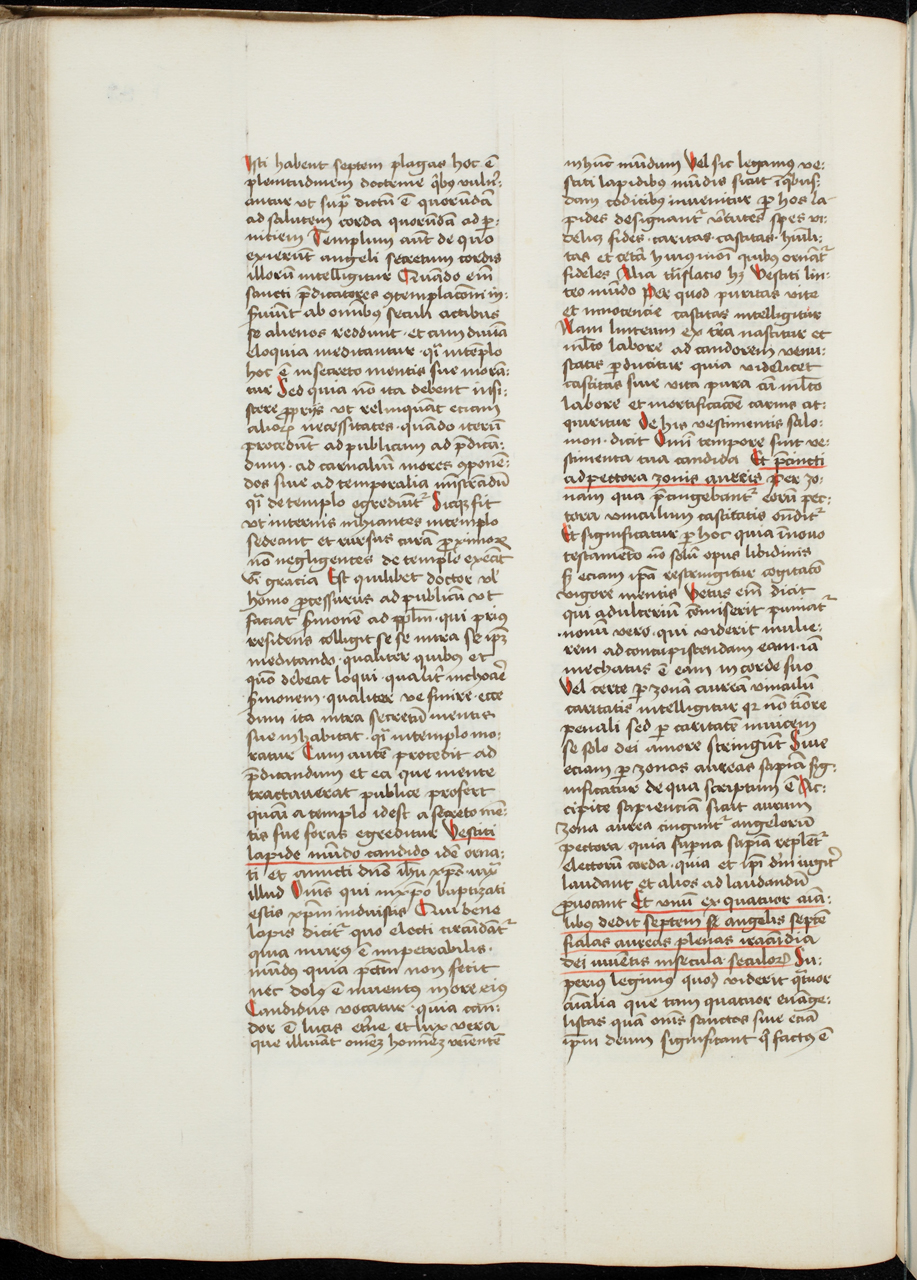 Isti habent septem plagas hoc ē
plenitudinem doctrine qͥbꝰ vulne͛-
antur vt supᵃ dictū ē quorūdā
ad salutem corda quorūdā ad ꝑ-
niciem Templum autē de quo
exierūt angeli secretum cordis
illorū intelligitur Quādo eīm
sancti p̄dicatores ꝯtemplacōni in-
seruiūt ab om̄ibꝰ seculi actibus
se alienos reddunt · et cum diuīa
eloquia meditantur · qͣi in tēplo
hoc ē in secreto mentis sue morā-
tur Sed quia nō ita debent insi-
stere ꝓprijs vt relinquāt eciam
alioꝝ necessitates · quādo iterū
procedūt ad publicum ad p̄dicā-
dum · ad carnaliū mores ꝯponē-
dos siue ad temporalia mīstrādū
qͣi de templo egrediūtᷣ Sicqꝫ fit
vt internis inhiantes in templo
sedeant et rursus curā ꝓximoꝝ
nō negligentes de templo exeāt
v͛i gracia Est quilibet doctor vl᷑
homo ꝓcessurus ad publicū vt
faciat s͛monem ad pp̄lm · qui prius
residens colligit se se intra se ip̄ꝫ
meditando · qualiter quibꝰ et
quō debeat loqui · qualit͛ inchoare
s͛monem · qualiter ve finire · ecce
dum ita intra secretū mentis
sue inhabitat · qͣi in templo mo-
ratur Cum autē procedit ad
p̄dicandum et ea que mente
tractauerat publice profert
quasi a templo idest a secreto mē-
tis sue foras egreditur Vestiti
lapide mūdo candido idē orna-
ti et amicti dn̄o ih̄u xp̄o iuxᵃ
illud Om̄s qui in xp̄o baptizati
estis xp̄m induistis Qui bene
lapis dicitᷣ quo electi circūdātᷣ
quia durus ē impetrabilis ·
mūdus quia pctm̄ non fecit
nec dolꝰ ē inuentꝰ in ore eiꝰ
Candidus vocatur · quia can-
dor ē lucis et͛ne et lux vera
que illuīat omnēꝫ hominēꝫ veientē
in hūc mūdum Vel sic legamꝰ ve-
stiti lapidibꝰ mūdis sicut ī qͥbus-
dam codicibꝰ inuenitur ꝑ hos la-
pides designantᷣ v͛tutes spes vi-
delicꝫ fides · caritas · castitas · hūili-
tas et cet͛a huiꝰmōi quibꝰ ornātᷣ
fideles Alia tn̄slacio hꝫ Vestiti lin-
teo mūdo Per quod puritas vite
et innocencie castitas intelligitur
Nam linteum ex t͛ra nascitur et
ml̄to labore ad candorem venu-
statis ꝑducitur quia videlicet
castitas siue vita pura cū ml̄to
labore et mortificacōe carnis ac-
quiritur De his vestimentis salo-
mon · dicit Omī tempore sint ve-
stimenta tua candida Et p̄cincti
ad pectora zonis aureis Per zo-
nam qua p̄cingebantᷣ eorū pec-
tora vinculum castitatis on̄ditᷣ
Et significatur ꝑ hoc quia ī nouo
testamento nō solū opus libidinis
sꝫ eciam ip̄a restringitur cogitacō
vigore mentis Vetus eīm dicit
qui adulteriū cōmiserit puniatᷣ
· nouū vero · qui viderit mulie-
rem ad concupiscendam eam · iā
mechatus ē eam in corde suo
Vel certe ꝑ zonā aureā vinculū
caritatis intelligitur qꝛ nō tiōre
penali sed ꝑ caritatē inuicem
se solo dei amore stringūt Siue
eciam ꝑ zonas aureas sapiēcia sig-
nificatur de qua scriptum ē Ac-
cipite sapienciam sicut aurum
zona aurea cingūtᷣ angelorū
pectora quia sup͛na sapiēcia replentᷣ
electorū corda · quia et ip̄i dn̄m iugit͛
laudant et alios ad laudandū
ꝓuocant Et vnū ex quatuor aīa-
libus dedit septem angelis septē
fialas aureas plenas iracūdia
dei viuētis in secula seculoꝝ Su-
perius legimus quod viderit qͣtuor
aīalia que tam quatuor euāge-
listas quā om̄s sanctos siue eciā
ip̄m deum significant qͥ factꝰ ē